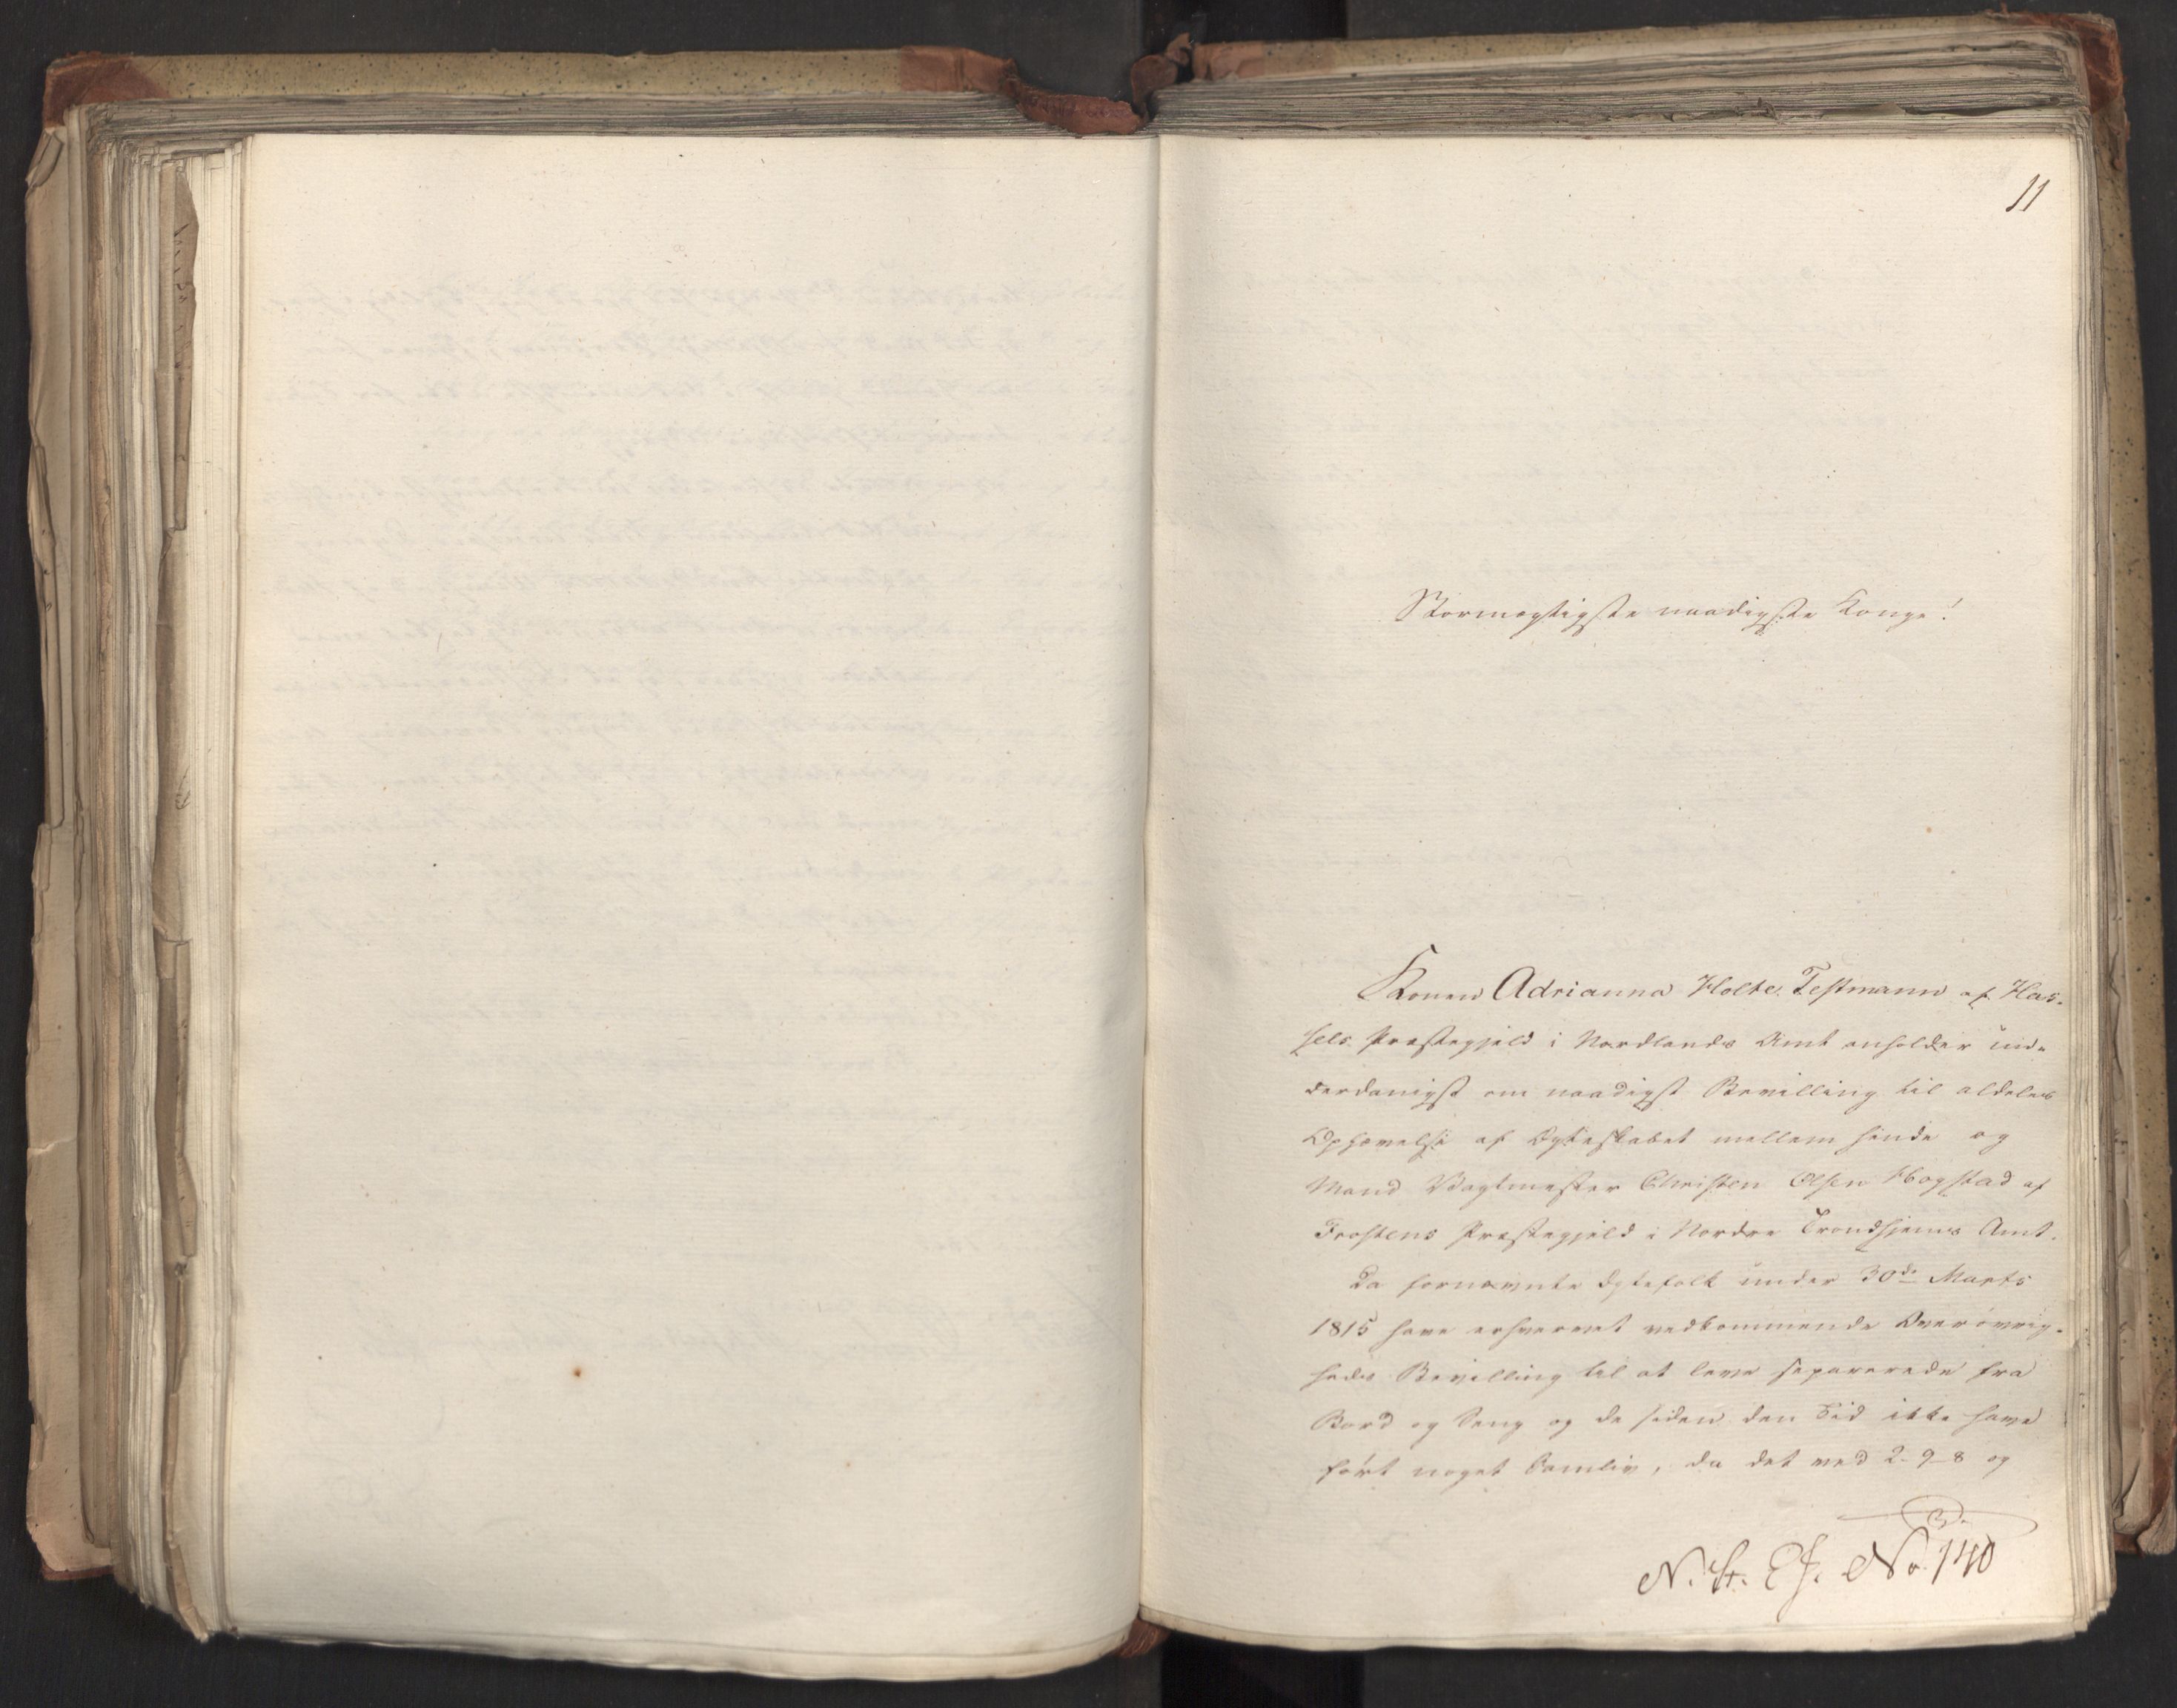 11
Stormægtigste naadigste Konge!
Konen Adrianna Holte Testmann af Has-
sels Præstegjeld i Nordlands Amt anholder un-
derdanigst om naadigst Bevilling til aldeles
Ophævelse af Ægteskabet mellem hende og
Mand Vagtmester Christen Olsen Hogstad af
Frostens Præstegjeld i Nordre Trondhjems Amt.
Da fornævnte Ægtefolk under 30de Marts
1815 have erhvervet vedkommende Overøvrig-
heds Bevilling til at leve separerede fra
Bord og Seng og de siden den Tid ikke have
ført noget Samliv, da det ved 2-9-8 og
N. St. E J. No. 140